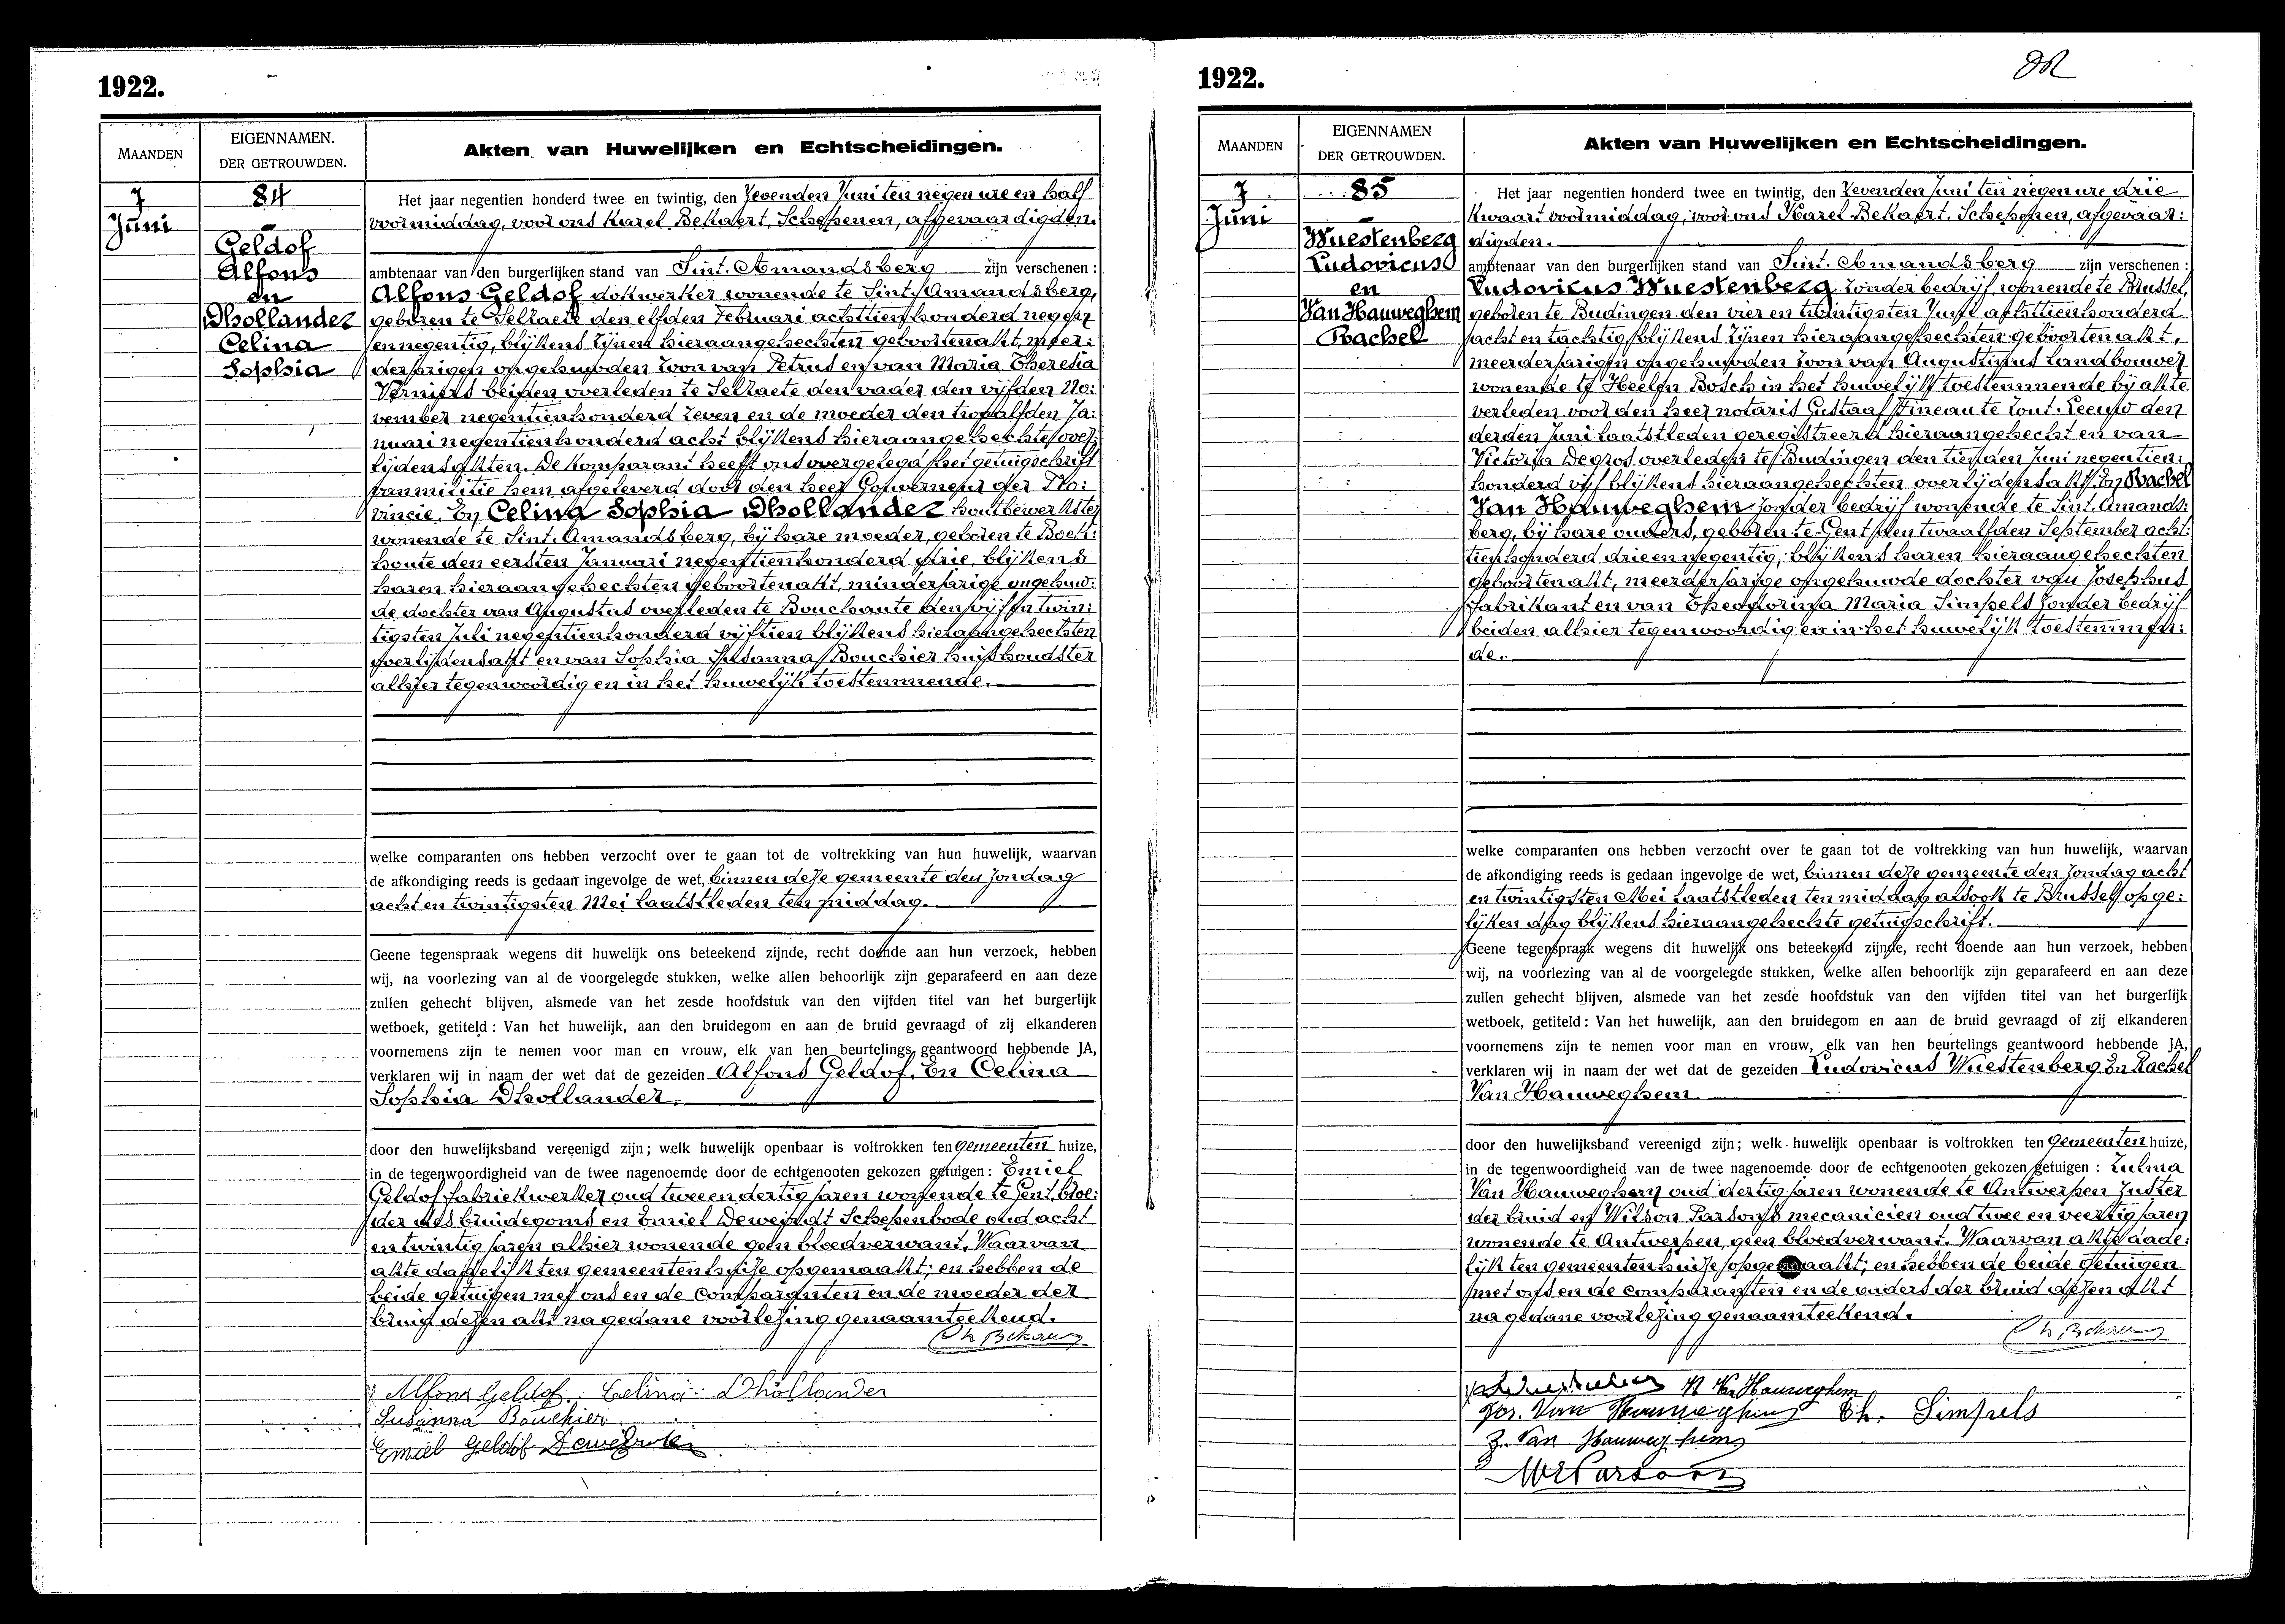 1922.
MAANDEN
EIGENNAMEN.
DER GETROUWDEN.
Akten van Huwelijken en Echtscheidingen.
7
Juni
84
Geldof
Alfons
en
Dhollander
Celina
Sophia
Het jaar negentien honderd twee en twintig, den Zevenden Juni ten negen ure en half
voormiddag, voor ons Karel Bekaert, Schepenen, afgevaardigden
ambtenaar van den burgerlijken stand van Sint. Amandsberg zijn verschenen :
Alfons Geldof dokwerker wonende te Sint. Amandsberg,
geboren te Selzaete den elfden Februari achttien honderd negen
en negentig, blijkens zijnen hieraangehechten geboortenakt, meer:
derjarigen ongehuwden zoon van Petrus en van Maria Theresia
Verniers beiden overleden te Selzaete den vader den vijfden No:
vember negentienhonderd zeven en de moeder den twaalfden Ja:
nuari negentienhonderd acht blijkens hieraangehechte over:
lijdensakten. De komparant heeft ons overgelegd het getuigschrift
van militie hem afgeleverd door den heer Gouverneur der Pro:
vincie. En Celina Sophia Dhollander houtbewerkster
wonende te Sint. Amandsberg, bij hare moeder, geboren te Boek:
houte den eersten Januari negentienhonderd drie, blijkens
haren hieraangehechten geboortenakt, minderjarige ongehuw:
de dochter van Augustus overleden te Bouchaute den vijf en twin:
tigsten Juli negentienhonderd vijftien blijkens hieraangehechten
overlijdensakt en van Sophia Susanna Bouchier huishoudster
alhier tegenwoordig en in het huwelijk toestemmende.
welke comparanten ons hebben verzocht over te gaan tot de voltrekking van hun huwelijk, waarvan
de afkondiging reeds is gedaan ingevolge de wet, binnen deze gemeente den Zondag
acht en twintigsten Mei laatstleden ten middag.
Geene tegenspraak wegens dit huwelijk ons beteekend zijnde, recht doende aan hun verzoek, hebben
wij, na voorlezing van al de voorgelegde stukken, welke allen behoorlijk zijn geparafeerd en aan deze
zullen gehecht blijven, alsmede van het zesde hoofdstuk van den vijfden titel van het burgerlijk
wetboek, getiteld : Van het huwelijk, aan den bruidegom en aan de bruid gevraagd of zij elkanderen
voornemens zijn te nemen voor man en vrouw, elk van hen beurtelings geantwoord hebbende JA,
verklaren wij in naam der wet dat de gezeiden Alfons Geldof. En Celina
Sophia Dhollander.
door den huwelijksband vereenigd zijn ; welk huwelijk openbaar is voltrokken ten gemeenten huize,
in de tegenwoordigheid van de twee nagenoemde door de echtgenooten gekozen getuigen : Emiel
Geldof fabriekwerker oud twee en dertig jaren wonende te Gent, broe:
der des bruidegoms en Emiel Deweirdt Schepenbode oud acht
en twintig jaren alhier wonende geen bloedverwant. Waarvan
akte dadelijk ten gemeentenhuize opgemaakt; en hebben de
beide getuigen met ons en de comparanten en de moeder der
bruid dezen akt na gedane voorlezing genaamteekend.
Ch Bekaert
Alfons Geldof. Celina Dhollander
Susanna Bouchier
Emiel Geldof

1922.
MAANDEN
EIGENNAMEN
DER GETROUWDEN.
Akten van Huwelijken en Echtscheidingen.
7
Juni
85
Wuestenberg
Ludovicus
en
Van Hauweghem
Rachel
Het jaar negentien honderd twee en twintig, den Zevenden Juni ten negen ure drie
kwaart voormiddag, voor ons Karel Bekaert. Schepenen, afgevaar:
digden.
ambtenaar van den burgerlijken stand van Sint. Amandsberg zijn verschenen :
Ludovicus Wuestenberg zonder bedrijf, wonende te Brussel,
geboren te Budingen den vier en twintigsten Juni achttienhonderd
acht en tachtig blijkens zijnen hieraangehechten geboortenakt,
meerderjarigen ongehuwden zoon van Augustinus landbouwer
wonende te Heelen Bosch in het huwelijk toestemmende bij akte
verleden voor den heer notaris Gustaaf Pineau te Zout. Leeuw den
derden Juni laatstleden geregistreerd hieraangehecht en van
Victoria Degros overleden te Budingen den tienden Juni negentien:
honderd vijf blijkens hieraangehechten overlijdensakt. En Rachel
Van Hauweghem zonder bedrijf wonende te Sint. Amands:
berg, bij hare ouders, geboren te Gent den twaalfden September acht:
tienhonderd drie en negentig, blijkens haren hieraangehechten
geboortenakt, meerderjarige ongehuwde dochter van Josephus
fabrikant en van Theodorina Maria Simpels zonder bedrijf
beiden alhier tegenwoordig en in het huwelijk toestemmen:
de.
welke comparanten ons hebben verzocht over te gaan tot de voltrekking van hun huwelijk, waarvan
de afkondiging reeds is gedaan ingevolge de wet, binnen deze gemeente den Zondag acht
en twintigsten Mei laatstleden ten middag alsook te Brussel op ge:
lijken dag blijkens hieraangehechte getuigschrift.
Geene tegenspraak wegens dit huwelijk ons beteekend zijnde, recht doende aan hun verzoek, hebben
wij, na voorlezing van al de voorgelegde stukken, welke allen behoorlijk zijn geparafeerd en aan deze
zullen gehecht blijven, alsmede van het zesde hoofdstuk van den vijfden titel van het burgerlijk
wetboek, getiteld : Van het huwelijk, aan den bruidegom en aan de bruid gevraagd of zij elkanderen
voornemens zijn te nemen voor man en vrouw, elk van hen beurtelings geantwoord hebbende JA,
verklaren wij in naam der wet dat de gezeiden Ludovicus Wuestenberg En Rachel
Van Hauweghem
door den huwelijksband vereenigd zijn ; welk huwelijk openbaar is voltrokken ten gemeenten huize,
in de tegenwoordigheid van de twee nagenoemde door de echtgenooten gekozen getuigen : Zulma
Van Hauweghem oud dertig jaren wonende te Antwerpen Zuster
der bruid en Wilson Parsons mecanicien oud twee en veertig jaren
wonende te Antwerpen, geen bloedverwant. Waarvan akte dade:
lijk ten gemeentenhuize opgemaakt; en hebben de beide getuigen
met ons en de comparanten en de ouders der bruid dezen akt
na gedane voorlezing genaamteekend.
Ch Bekaert
R Van Hauweghem
Jos. Van Hauweghem Th. Simpels
Z. Van Hauweghem
Parsons